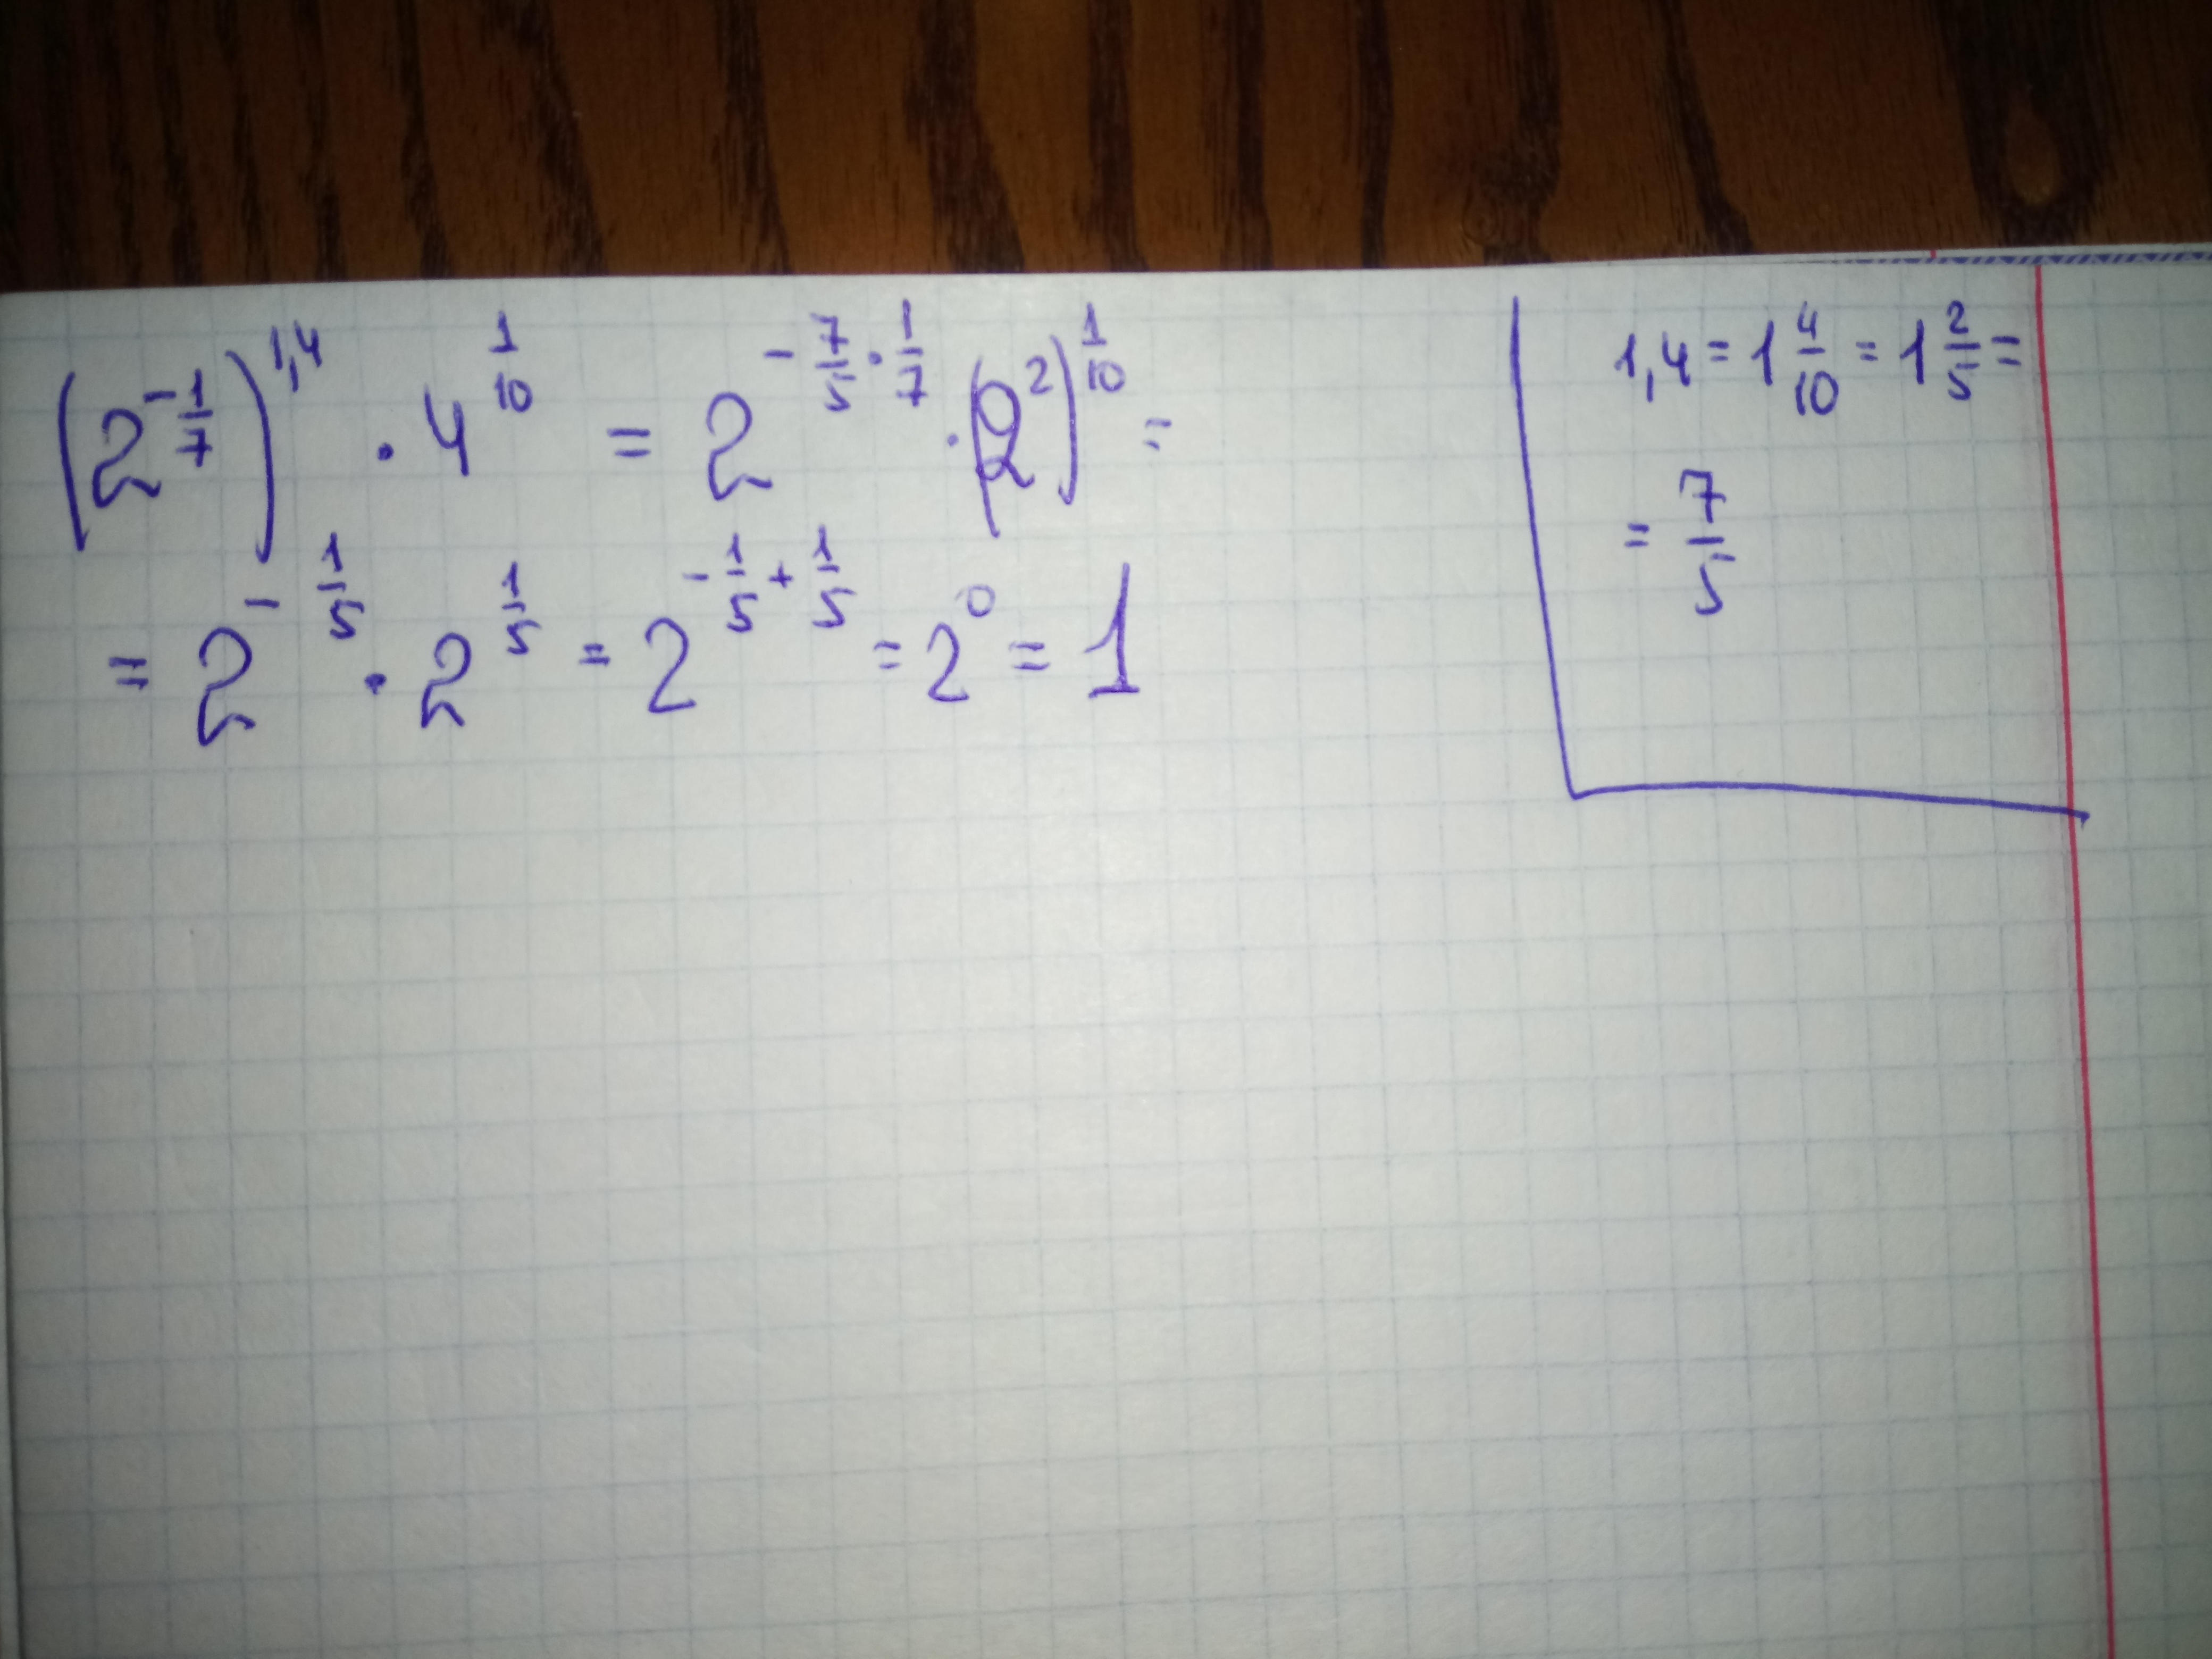 (2^{-\frac{1}{7}})^{1,4} · 4^{\frac{1}{10}} = 2^{-\frac{7}{5} · \frac{1}{7}} · (2^2)^{\frac{1}{10}} =
= 2^{-\frac{1}{5}} · 2^{\frac{1}{5}} = 2^{-\frac{1}{5} + \frac{1}{5}} = 2^0 = 1
1,4 = 1\frac{4}{10} = 1\frac{2}{5} =
= \frac{7}{5}